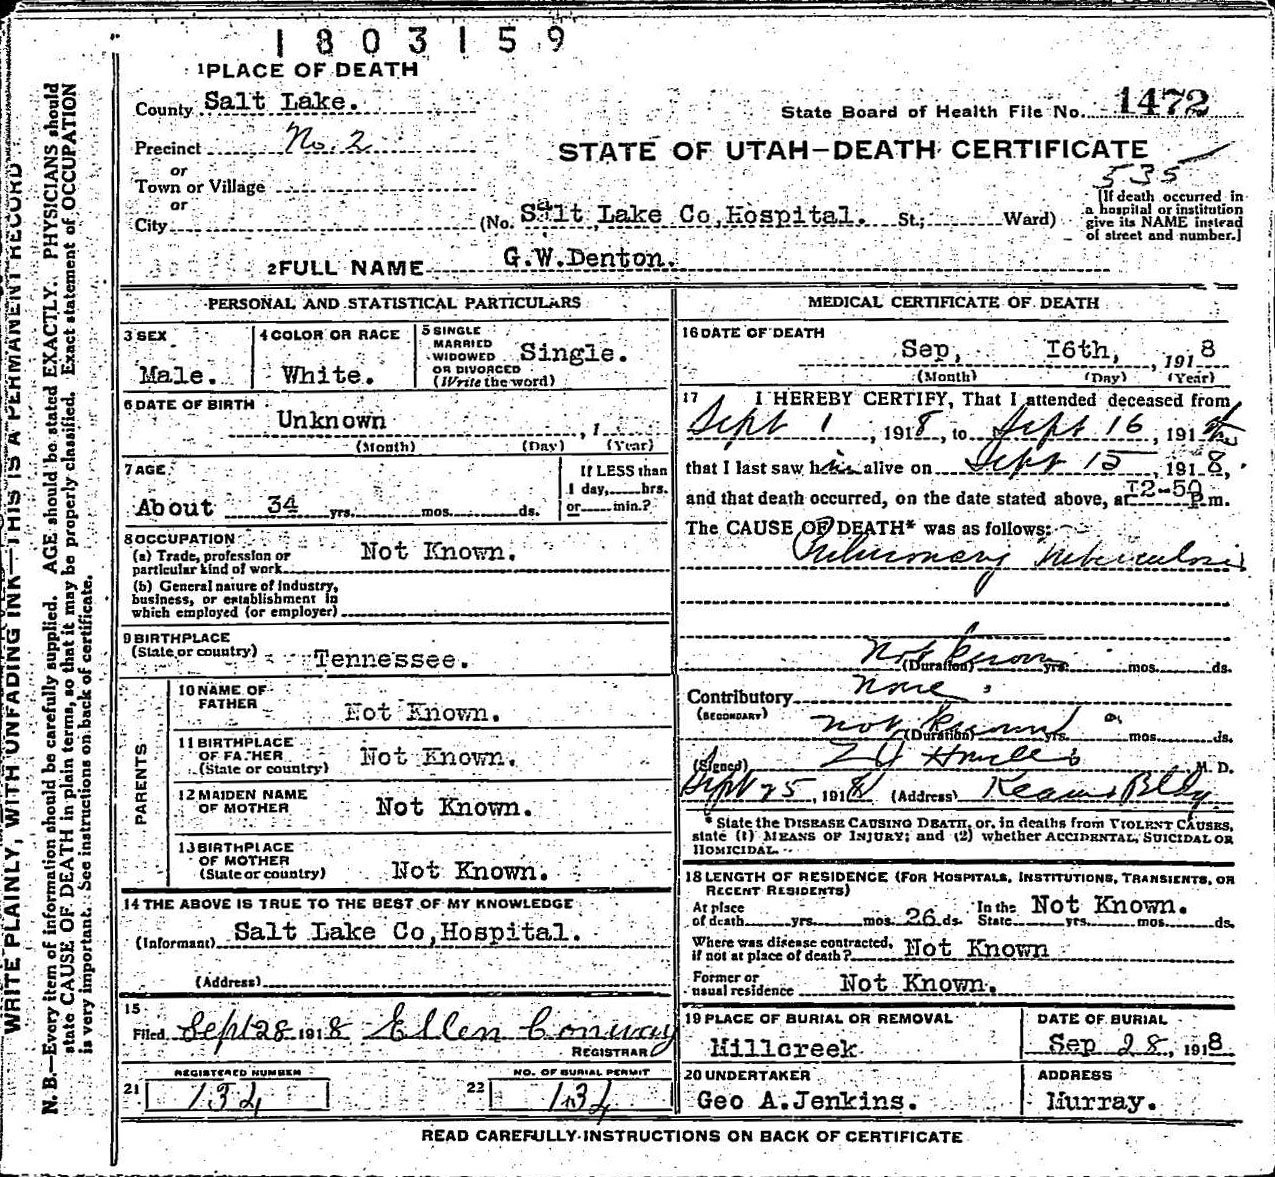 1803159
1 PLACE OF DEATH
County Salt Lake.
State Board of Health File No. 1472
Precinct No. 2
STATE OF UTAH—DEATH CERTIFICATE
or
Town or Village
or
City
535
(No. Salt Lake Co, Hospital. St; Ward)
[If death occurred in
a hospital or institution
give its NAME instead
of street and number.]
2 FULL NAME G.W.Denton.
PERSONAL AND STATISTICAL PARTICULARS
3 SEX
Male.
4 COLOR OR RACE
White.
5 SINGLE
MARRIED
WIDOWED
OR DIVORCED
(Write the word)
Single.
6 DATE OF BIRTH
Unknown , 1
(Month) (Day) (Year)
7 AGE
About 34 yrs. mos. ds.
If LESS than
1 day, hrs.
or min.?
8 OCCUPATION
(a) Trade, profession or
particular kind of work Not Known.
(b) General nature of industry,
business, or establishment in
which employed (or employer)
9 BIRTHPLACE
(State or country) Tennessee.
PARENTS
10 NAME OF
FATHER
Not Known.
11 BIRTHPLACE
OF FATHER
(State or country)
Not Known.
12 MAIDEN NAME
OF MOTHER
Not Known.
13 BIRTHPLACE
OF MOTHER
(State or country)
Not Known.
14 THE ABOVE IS TRUE TO THE BEST OF MY KNOWLEDGE
(Informant) Salt Lake Co, Hospital.
(Address)
15
Filed Sept 28 1918 Ellen Conway
REGISTRAR
REGISTERED NUMBER
21 134
NO. OF BURIAL PERMIT
22 134
MEDICAL CERTIFICATE OF DEATH
16 DATE OF DEATH
Sep, 16th, , 1918
(Month) (Day) (Year)
17 I HEREBY CERTIFY, That I attended deceased from
Sept 1 , 1918, to Sept 16 , 191
that I last saw him alive on Sept 15 , 1918,
and that death occurred, on the date stated above, at 12-50 P.m.
The CAUSE OF DEATH* was as follows:
Pulmonary Tuberculosis
Not known
(Duration) yrs. mos. ds.
Contributory None
(SECONDARY)
not known
(Duration) yrs. mos. ds.
(Signed) M. D.
Sept 25 , 1918 (Address) Kearns Bldg
* State the DISEASE CAUSING DEATH, or, in deaths from VIOLENT CAUSES,
state (1) MEANS OF INJURY; and (2) whether ACCIDENTAL, SUICIDAL OR
HOMICIDAL.
18 LENGTH OF RESIDENCE (FOR HOSPITALS, INSTITUTIONS, TRANSIENTS, OR
RECENT RESIDENTS)
At place
of death yrs. mos. 26 ds.
In the
State Not Known. yrs. mos. ds.
Where was disease contracted,
if not at place of death? Not Known
Former or
usual residence Not Known.
19 PLACE OF BURIAL OR REMOVAL
Millcreek
DATE OF BURIAL
Sep 28, 1918
20 UNDERTAKER
Geo A.Jenkins.
ADDRESS
Murray.
READ CAREFULLY INSTRUCTIONS ON BACK OF CERTIFICATE
WRITE PLAINLY, WITH UNFADING INK—THIS IS A PERMANENT RECORD
N. B.—Every item of information should be carefully supplied. AGE should be stated EXACTLY. PHYSICIANS should
state CAUSE OF DEATH in plain terms, so that it may be properly classified. Exact statement of OCCUPATION
is very important. See instructions on back of certificate.